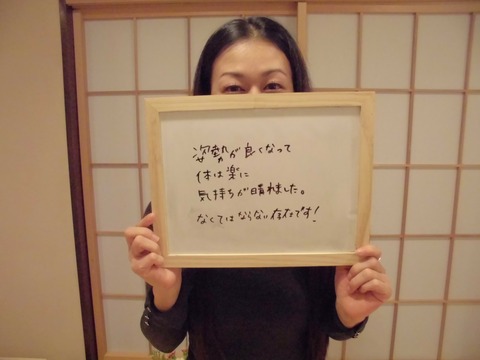 姿勢が良くなって
体は楽に
気持ちが晴れました。
なくてはならない存在です!